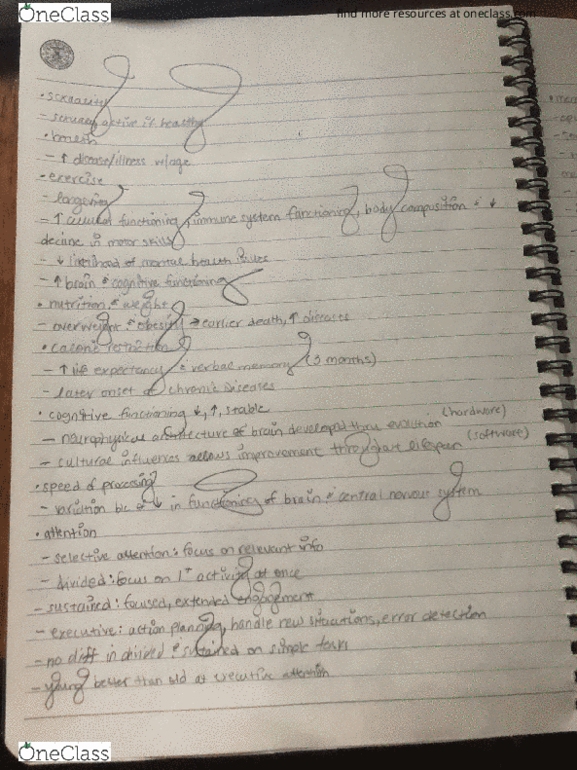 OneClass
find more resources at oneclass.com
• sexuality
- sexually active if healthy
• health
- ↑ disease/illness w/age
• exercise
- longevity
- ↑ cellular functioning, immune system functioning, body composition & ↓
decline in motor skills
- ↓ likelihood of mental health issues
- ↑ brain & cognitive functioning
• nutrition & weight
- overweight & obesity → earlier death, ↑ diseases
• caloric restriction
- ↑ life expectancy & verbal memory (3 months)
- later onset of chronic diseases
• cognitive functioning ↓, ↑, stable
- neurophysical architecture of brain developed thru evolution (hardware)
- cultural influences allows improvement throughout lifespan (software)
• speed of processing
- variation b/c of ↓ in functioning of brain & central nervous system
• attention
- selective attention: focus on relevant info
- divided: focus on 1+ activity at once
- sustained: focused, extended engagement
- executive: action planning, handle new situations, error detection
- no diff in divided & sustained on simple tasks
- young better than old at executive attention
OneClass